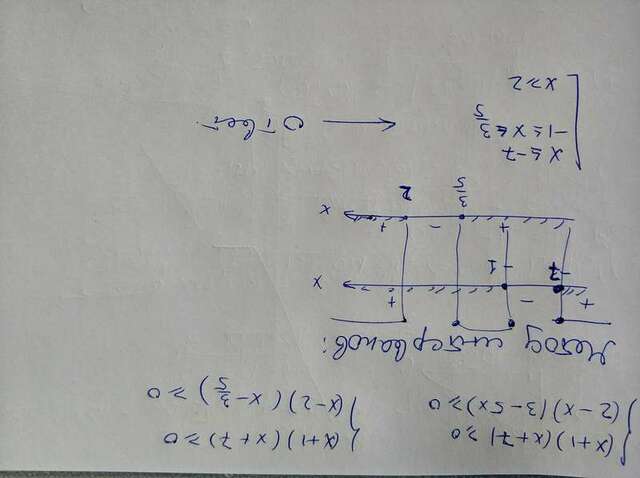 (x+1)(x+7) ≥ 0
(2-x)(3-5x) ≥ 0
(x+1)(x+7) ≥ 0
(x-2)(x-3/5) ≥ 0
Метод интервалов:
+ - +
-7 -1 x
+ - +
3/5 2 x
x ≤ -7
-1 ≤ x ≤ 3/5
x ≥ 2
← ответ.